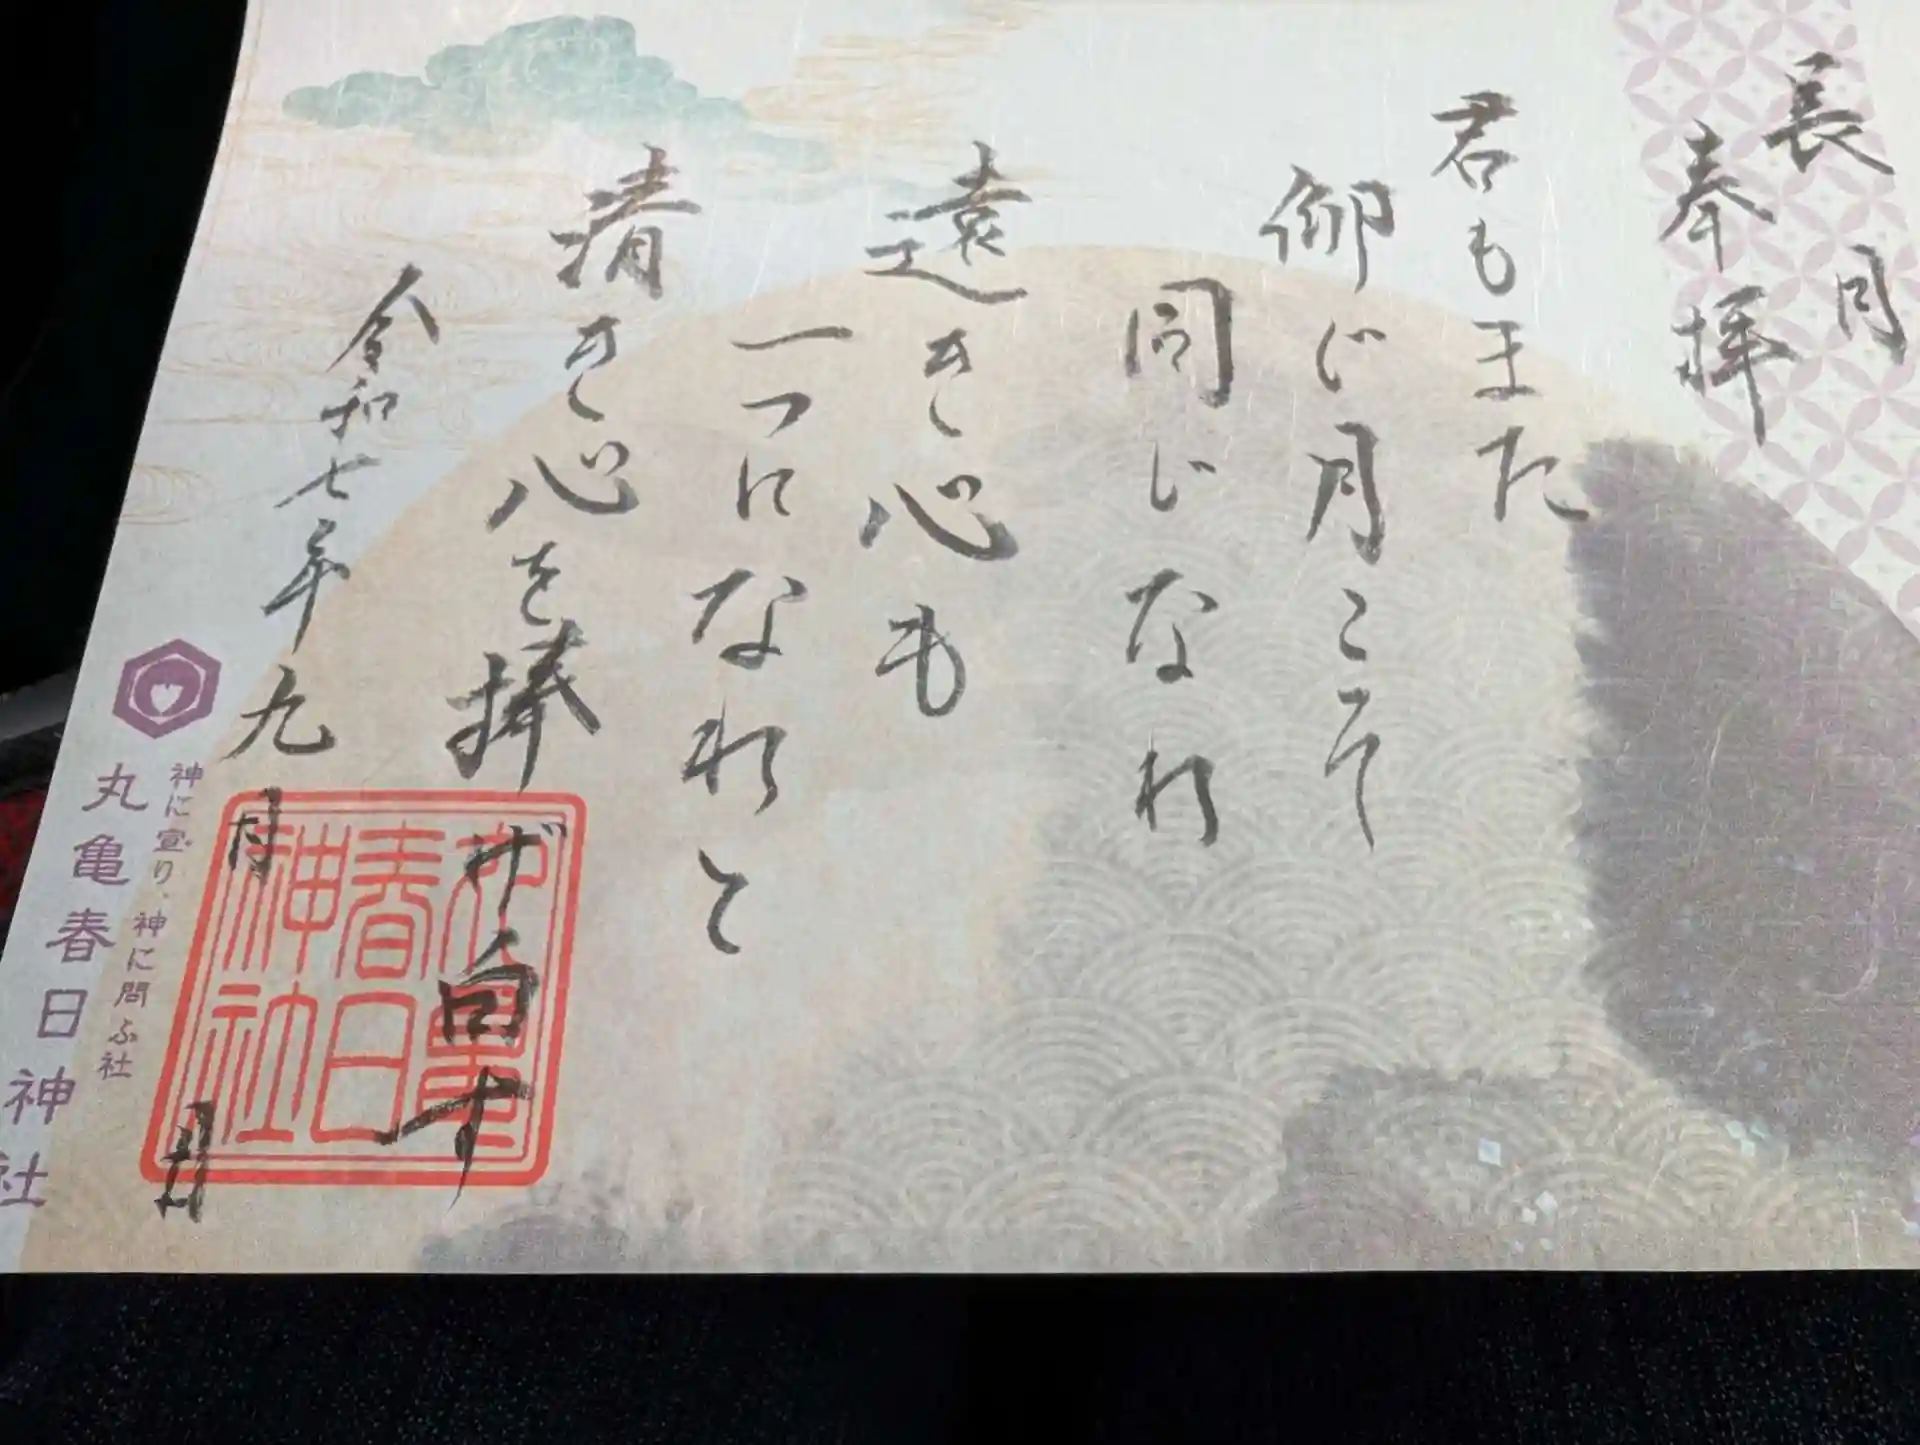 長月
奉拝
君もまた
仰ぐ月こそ
同じなれ
遠き心も
一つになれと
清き心を捧げ白す
令和七年九月 日
神に宣り、神に問ふ社
丸亀春日神社
丸亀
春日
神社